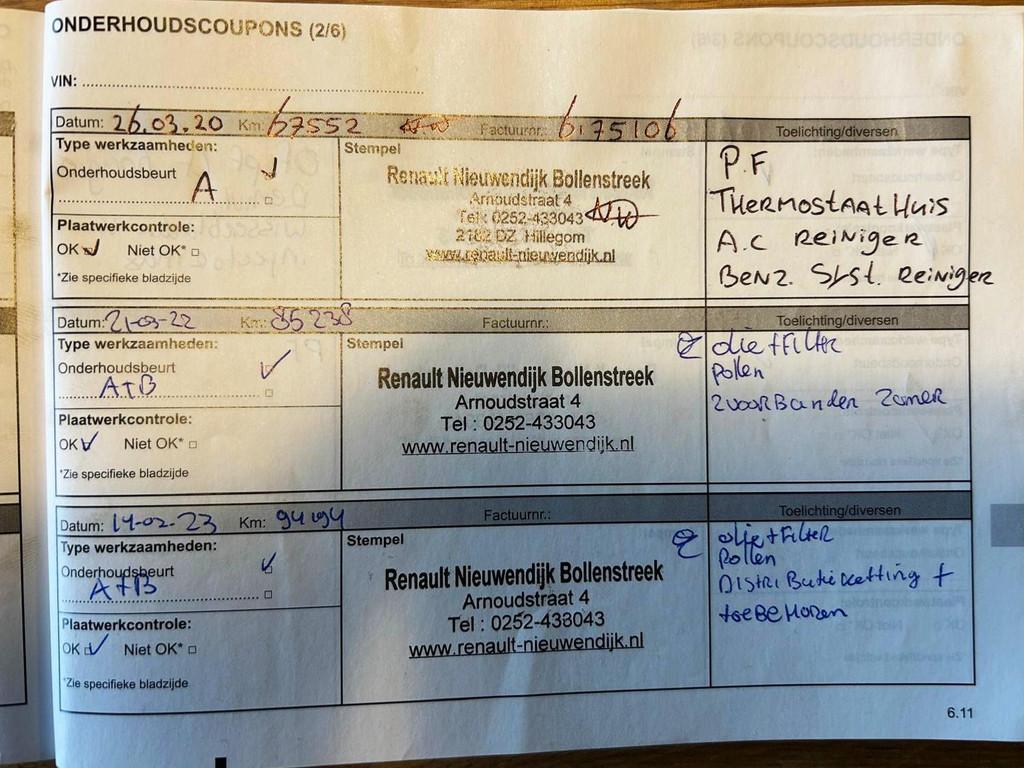 ONDERHOUDSCOUPONS (2/6)
VIN:
Datum: 26.03.20 Km: 67552 Factuurnr.: 6175106 Toelichting/diversen
Type werkzaamheden:
Onderhoudsbeurt
A
Plaatwerkcontrole:
OK Niet OK*
*Zie specifieke bladzijde
Stempel
Renault Nieuwendijk Bollenstreek
Arnoudstraat 4
Tel : 0252-433043
2182 DZ Hillegom
www.renault-nieuwendijk.nl
P.F
THERMOSTAAT HUIS
A.C REINIGER
BENZ. SYST. REINIGER
Datum: 21-03-22 Km: 85238 Factuurnr.: Toelichting/diversen
Type werkzaamheden:
Onderhoudsbeurt
A+B
Plaatwerkcontrole:
OK Niet OK*
*Zie specifieke bladzijde
Stempel
Renault Nieuwendijk Bollenstreek
Arnoudstraat 4
Tel : 0252-433043
www.renault-nieuwendijk.nl
olie+Filter
Pollen
2 voor Banden Zomer
Datum: 14-02-23 Km: 94194 Factuurnr.: Toelichting/diversen
Type werkzaamheden:
Onderhoudsbeurt
A+B
Plaatwerkcontrole:
OK Niet OK*
*Zie specifieke bladzijde
Stempel
Renault Nieuwendijk Bollenstreek
Arnoudstraat 4
Tel : 0252-433043
www.renault-nieuwendijk.nl
olie+Filter
Pollen
Distributieketting +
toebehoren
6.11